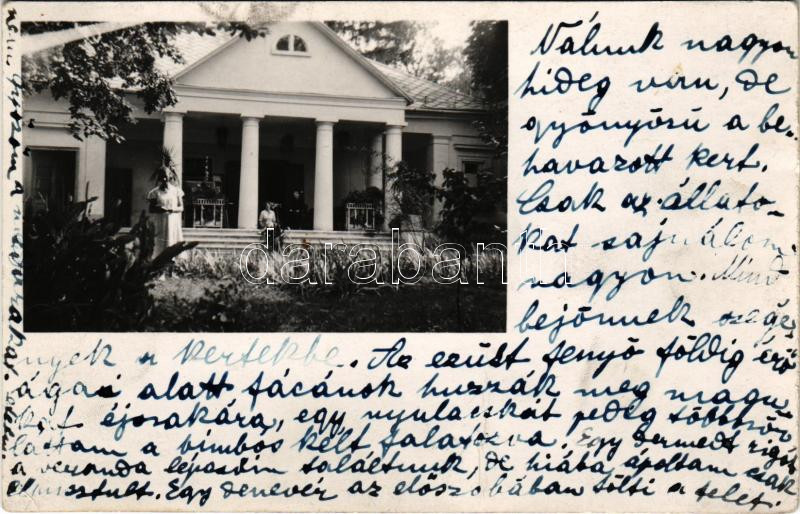 Nálunk nagyon
hideg van, de
gyönyörű a be-
havazott kert.
Csak az állato-
kat sajnálom
nagyon. Mind
bejönnek szegé-
nyek a kertekbe. Az ezüst fenyő földig érő
ágai alatt fácánok huzzák meg magu-
kat éjszakára, egy nyulacskát pedig többször
láttam a bimbós kélt falatozva. Egy dermedt rigót
a veranda lépcsőin találtunk, de hiába ápoltam csak
elpusztult. Egy denevér az előszobában tölti a telet.
a madarakat.
darabanth